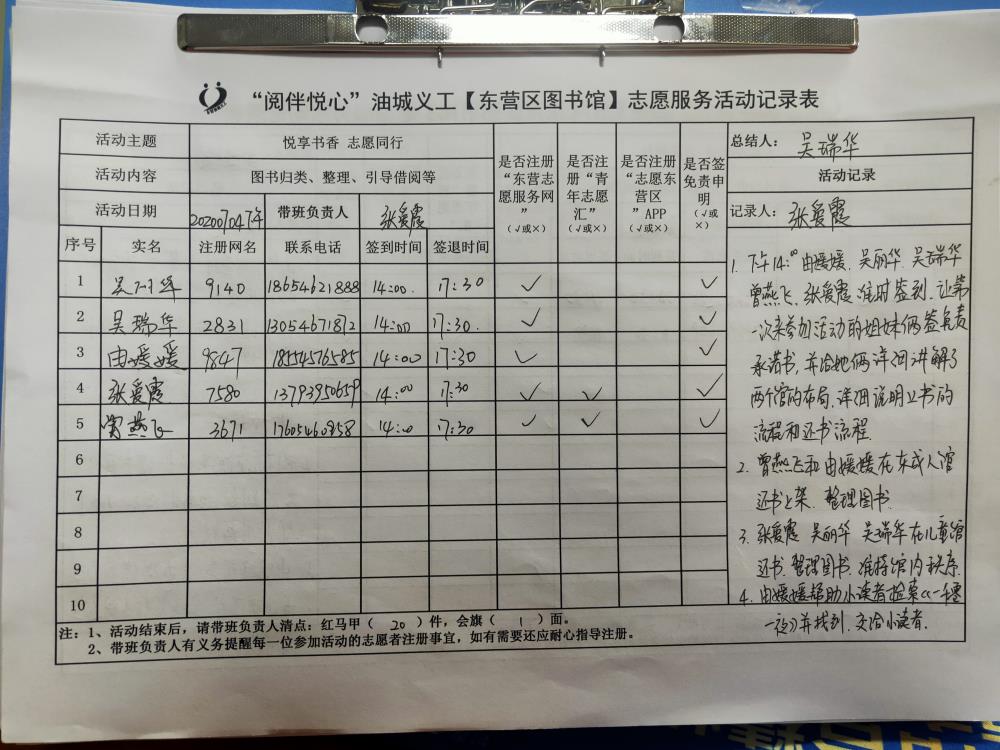 “阅伴悦心”油城义工【东营区图书馆】志愿服务活动记录表
活动主题 悦享书香 志愿同行
活动内容 图书归类、整理、引导借阅等
活动日期 20201047午 带班负责人 张爱霞
是否注册“东营志愿服务网”（√或×）
是否注册“青年志愿汇”（√或×）
是否注册“志愿东营区”APP（√或×）
是否签免责申明（√或×）
总结人：吴瑞华
活动记录
记录人：张爱霞
序号 实名 注册网名 联系电话 签到时间 签退时间
1 吴丽华 9140 18654621888 14:00. 17:30 √ √
2 吴瑞华 2831 13054671872 14:00 17:30. √ √
3 由媛媛 9847 18554576585 14:00 17:30 √ √
4 张爱霞 7580 13793950659 14:00 17:30 √ √ √
5 曾燕飞 3671 17605460858 14:00 17:30 √ √ √
6
7
8
9
10
1. 下午14:00由媛媛、吴丽华、吴瑞华
曾燕飞、张爱霞准时签到.让第
一次来参加活动的姐妹俩签免责
承诺书,并给她俩详细讲解了
两个馆的布局.详细说明上书的
流程和还书流程.
2. 曾燕飞和由媛媛在东成人馆
还书上架.整理图书.
3. 张爱霞 吴丽华 吴瑞华在儿童馆
还书.整理图书.维持馆内秩序.
4. 由媛媛帮助小读者检索《一千零
一夜》并找到.交给小读者.
注：1、活动结束后，请带班负责人清点：红马甲（ 20 ）件，会旗（ 1 ）面。
2、带班负责人有义务提醒每一位参加活动的志愿者注册事宜，如有需要还应耐心指导注册。